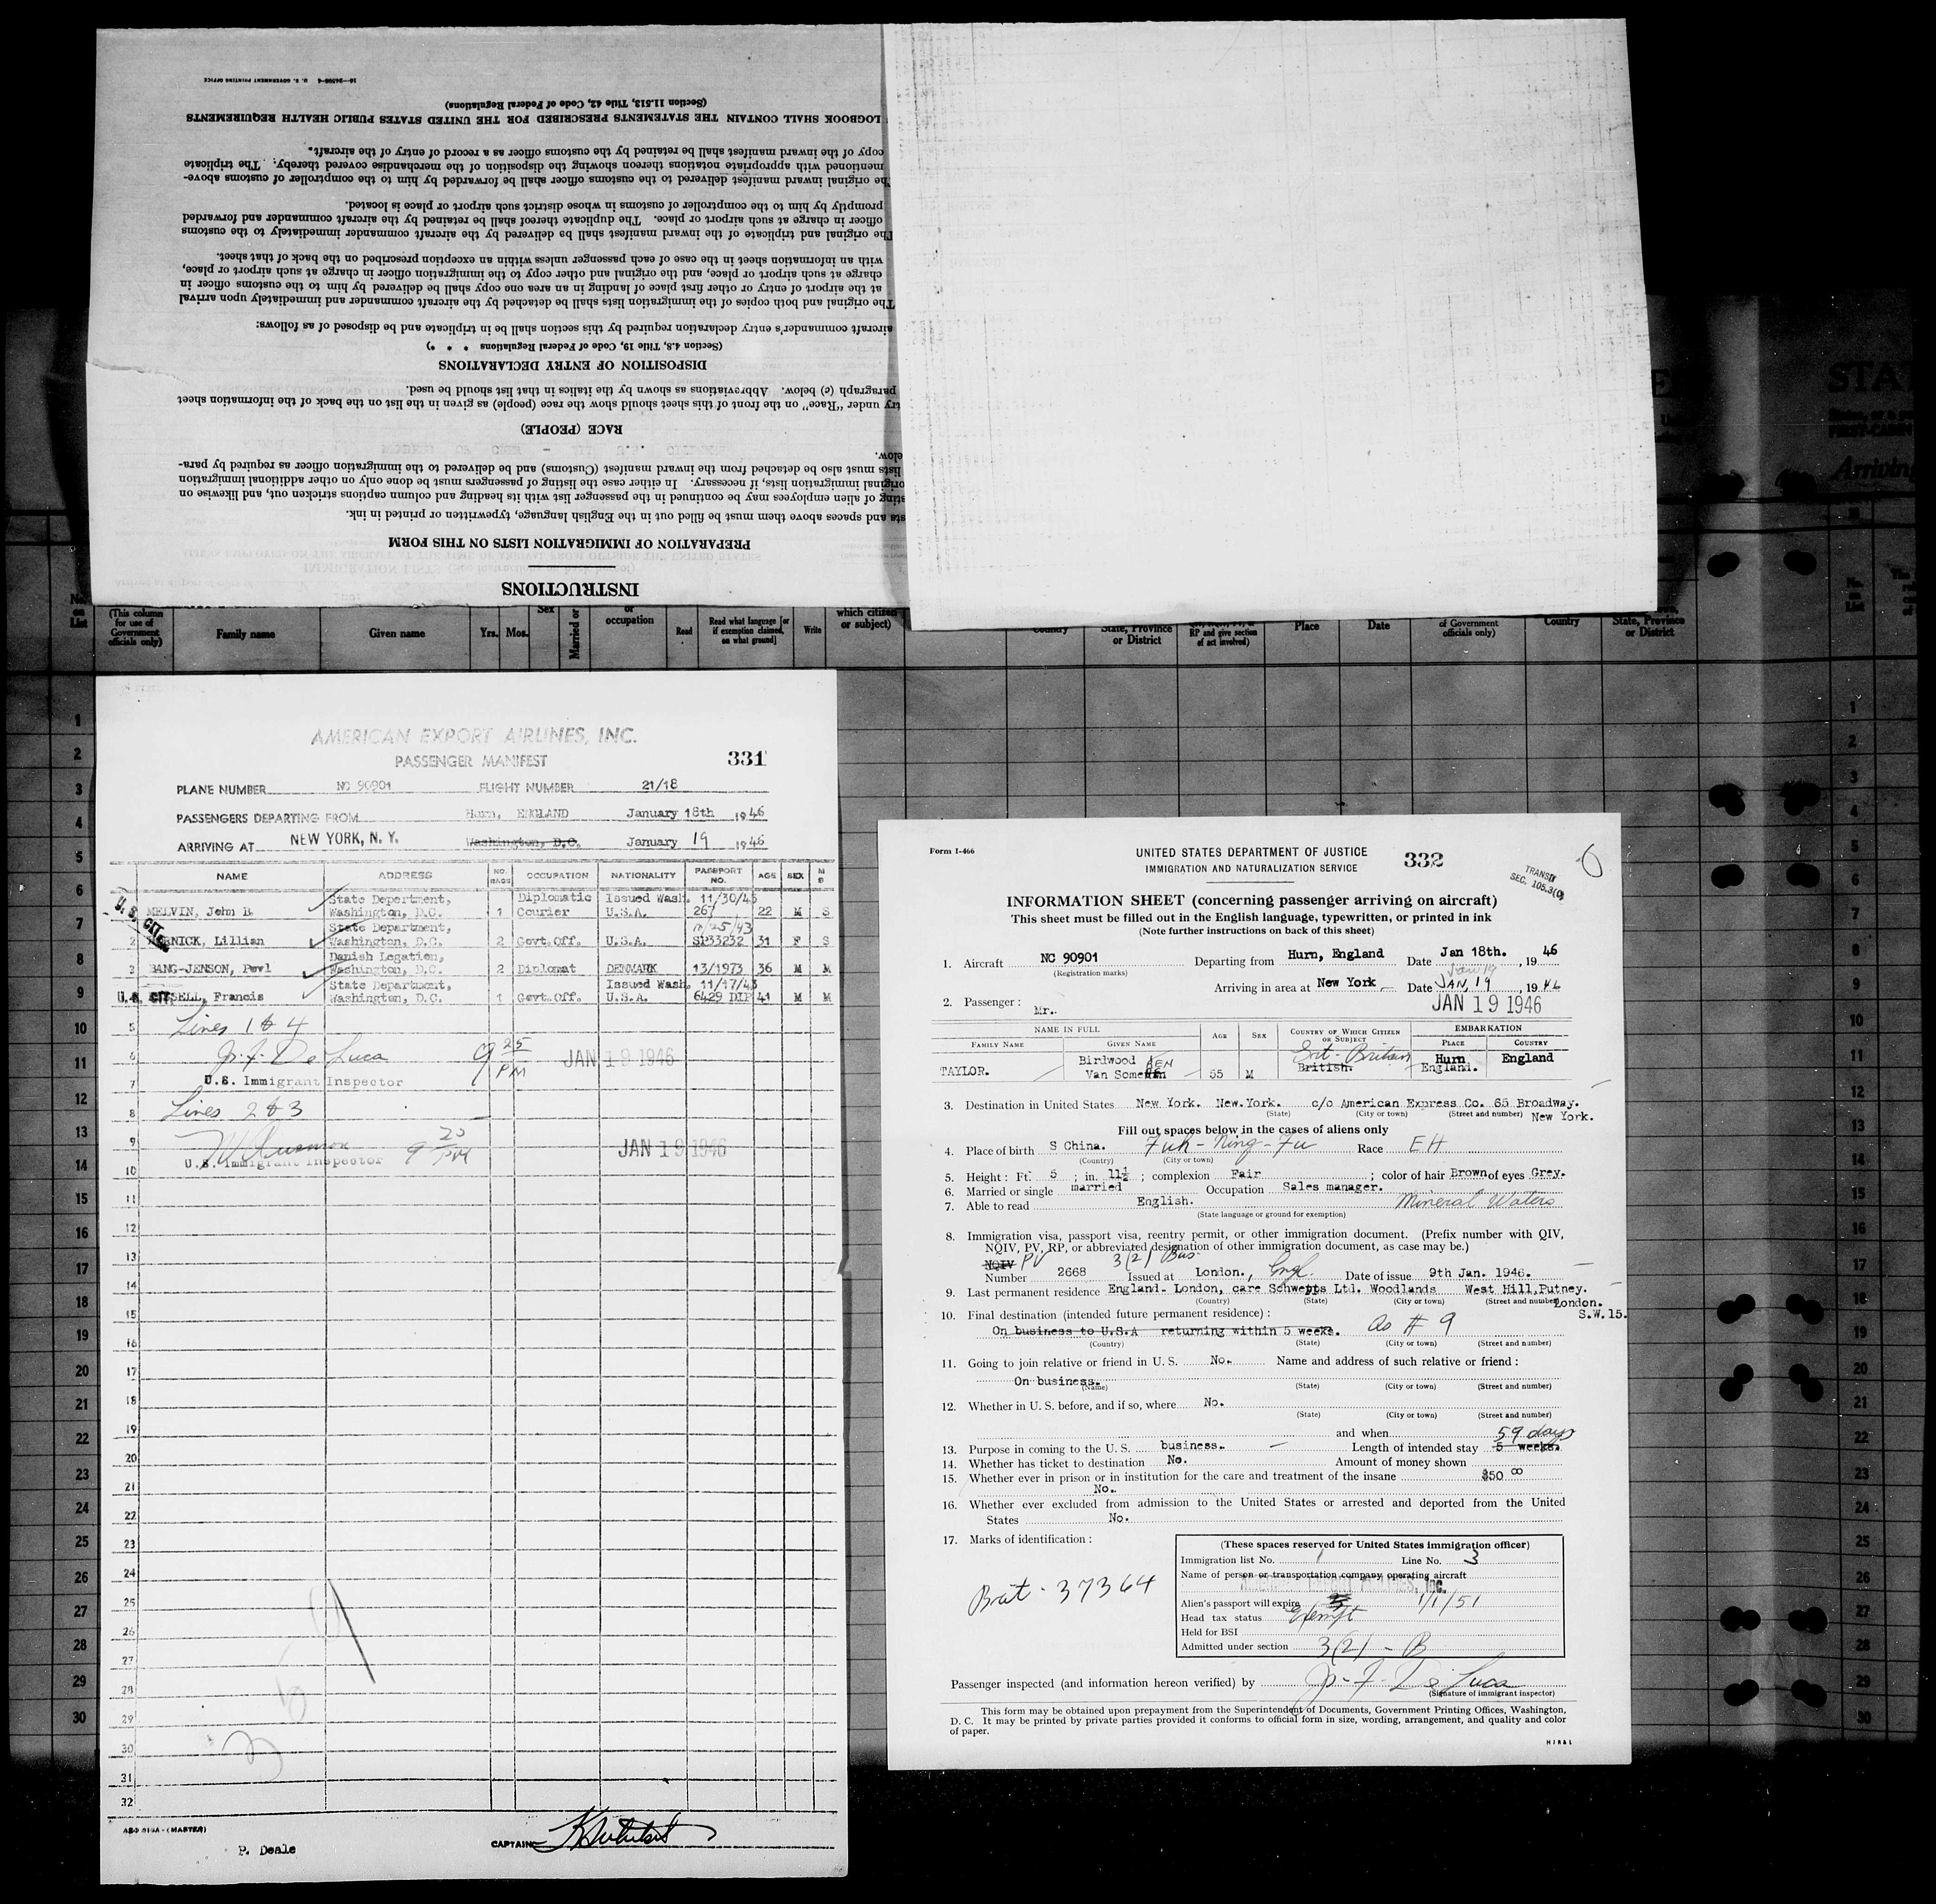 INSTRUCTIONS
PREPARATION OF IMMIGRATION LISTS ON THIS FORM
and spaces above them must be filled out in the English language, typewritten or printed in ink.
of alien employees may be continued in the passenger list with its heading and column captions stricken out, and likewise on
original immigration lists, if necessary. In either case the listing of passengers must be done only on other additional immigration
lists must also be detached from the inward manifest (Customs) and be delivered to the immigration officer as required by para-
below.
RACE (PEOPLE)
under "Race" on the front of this sheet should show the race (people) as given in the list on the back of the information sheet
paragraph (c) below. Abbreviations as shown by the italics in that list should be used.
DISPOSITION OF ENTRY DECLARATIONS
(Section 4.8, Title 19, Code of Federal Regulations * * *)
aircraft commander's entry declaration required by this section shall be in triplicate and be disposed of as follows:
The original and both copies of the immigration lists shall be detached by the aircraft commander and immediately upon arrival
at the airport of entry or other first place of landing in an area one copy shall be delivered by him to the customs officer in
charge at such airport or place, and the original and other copy to the immigration officer in charge at such airport or place,
with an information sheet in the case of each passenger unless within an exception prescribed on the back of that sheet.
The original and triplicate of the inward manifest shall be delivered by the aircraft commander immediately to the customs
officer in charge at such airport or place. The duplicate thereof shall be retained by the aircraft commander and forwarded
promptly by him to the comptroller of customs in whose district such airport or place is located.
The original inward manifest delivered to the customs officer shall be forwarded by him to the comptroller of customs above-
mentioned with appropriate notations thereon showing the disposition of the merchandise covered thereby. The triplicate
copy of the inward manifest shall be retained by the customs officer as a record of entry of the aircraft.
LOGBOOK SHALL CONTAIN THE STATEMENTS PRESCRIBED FOR THE UNITED STATES PUBLIC HEALTH REQUIREMENTS
(Section 11.513, Title 42, Code of Federal Regulations)
U. S. GOVERNMENT PRINTING OFFICE
STA
Arriving
No. on List
(This column for use of Government officials only)
Family name
Given name
Yrs.
Mos.
Sex
Married or
or occupation
Read
Read what language [or if exemption claimed, on what ground]
Write
which citizen or subject)
Country
State, Province or District
RP and give section of act involved)
Place
Date
of Government officials only)
Country
State, Province or District
No. on List
AMERICAN EXPORT AIRLINES, INC.
PASSENGER MANIFEST 331
PLANE NUMBER NC 90901 FLIGHT NUMBER 21/18
PASSENGERS DEPARTING FROM Hurn, ENGLAND January 18th 1946
ARRIVING AT NEW YORK, N. Y. Washington, D.C. January 19 1946
NAME ADDRESS NO. BAGS OCCUPATION NATIONALITY PASSPORT NO. AGE SEX M S
U. S. CIT.
State Department, Diplomatic Issued Wash. 11/30/45
MELVIN, John B. Washington, D.C. 1 Courier U.S.A. 267 22 M S
State Department,
2 Lillian Washington, D.C. 2 Govt. Off. U.S.A. SP33232 31 F S
Danish Legation,
3 BANG-JENSON, Povl Washington, D.C. 2 Diplomat DENMARK 13/1973 36 M M
State Department, Issued Wash. 11/17/43
U.S. CIT. Francis Washington, D.C. 1 Govt. Off. U.S.A. 6429 DIP 41 M M
5 Lines 1 & 4
6 J. F. De Luca 9 25 PM JAN 19 1946
7 U.S. Immigrant Inspector
8 Lines 2 & 3
9 9 20 PM JAN 19 1946
10 U.S. Immigrant Inspector
11
12
13
14
15
16
17
18
19
20
21
22
23
24
25
26
27
28
29
30
31
32
(MASTER)
P. Deale CAPTAIN
Form I-466
UNITED STATES DEPARTMENT OF JUSTICE 332
IMMIGRATION AND NATURALIZATION SERVICE
TRANSIT
SEC. 105.3(c)
INFORMATION SHEET (concerning passenger arriving on aircraft)
This sheet must be filled out in the English language, typewritten, or printed in ink
(Note further instructions on back of this sheet)
1. Aircraft NC 90901 Departing from Hurn, England Date Jan 18th. , 1946
(Registration marks)
Arriving in area at New York Date JAN, 19 , 1946
2. Passenger: Mr. JAN 19 1946
NAME IN FULL AGE SEX COUNTRY OF WHICH CITIZEN OR SUBJECT EMBARKATION
FAMILY NAME GIVEN NAME PLACE COUNTRY
Birdwood Gt. Britain Hurn England
TAYLOR. Van Someren 55 M British. England.
3. Destination in United States New York. New.York. c/o American Express Co. 65 Broadway.
(State) (City or town) (Street and number) New York.
Fill out spaces below in the cases of aliens only
4. Place of birth S China. Fuh-Ning-Fu Race EH
(Country) (City or town)
5. Height: Ft. 5 ; in. 11½ ; complexion Fair ; color of hair Brown of eyes Grey.
6. Married or single married Occupation Sales manager.
7. Able to read English. Mineral Waters
(State language or ground for exemption)
8. Immigration visa, passport visa, reentry permit, or other immigration document. (Prefix number with QIV,
NQIV, PV, RP, or abbreviated designation of other immigration document, as case may be.)
NQIV PV 3(2) Bus.
Number 2668 Issued at London., Engl. Date of issue 9th Jan. 1946.
9. Last permanent residence England. London, care Schwepps Ltd. Woodlands West Hill, Putney.
(Country) (State) (City or town) (Street and number) London.
S.W.15.
10. Final destination (intended future permanent residence):
On business to U.S.A returning within 5 weeks. as # 9
(Country) (State) (City or town) (Street and number)
11. Going to join relative or friend in U. S. No. Name and address of such relative or friend:
On business.
(Name) (State) (City or town) (Street and number)
12. Whether in U. S. before, and if so, where No.
(State) (City or town) (Street and number)
and when
59 days
13. Purpose in coming to the U. S. business. Length of intended stay 5 weeks.
14. Whether has ticket to destination No. Amount of money shown
15. Whether ever in prison or in institution for the care and treatment of the insane $50 00
No.
16. Whether ever excluded from admission to the United States or arrested and deported from the United
States No.
17. Marks of identification:
Brit-37364
(These spaces reserved for United States immigration officer)
Immigration list No. 1 Line No. 3
Name of person or transportation company operating aircraft
Inc.
Alien's passport will expire 1/1/51
Head tax status Exempt
Held for BSI
Admitted under section 3(2)-B
Passenger inspected (and information hereon verified) by J. F. De Luca
(Signature of immigrant inspector)
This form may be obtained upon prepayment from the Superintendent of Documents, Government Printing Offices, Washington,
D. C. It may be printed by private parties provided it conforms to official form in size, wording, arrangement, and quality and color
of paper.